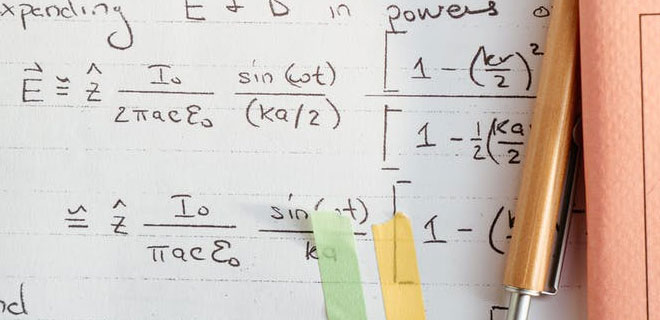 xpanding E + B in powers o
E⃗ ≅ ẑ I₀/(2πacε₀) sin(ωt)/(ka/2) [1 - (kr/2)²]/[1 - ½(ka/2
≅ ẑ I₀/(πacε₀) sin(ωt)/ka [1 - (
nd